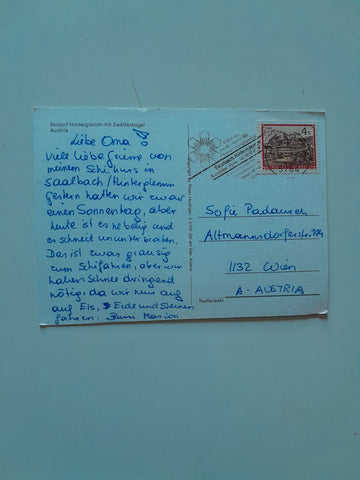 Skidorf Hinterglemm mit Zwölferkogel
Austria
Liebe Oma!
Viele liebe Grüsse von
meinem Schikurs in
Saalbach/Hinterglemm
Gestern hatten wir zwar
einen Sonnentag, aber
heute ist es nebelig und
es schneit ununterbrochen.
Das ist zwar grausig
zum Schifahren, aber wir
haben Schnee dringend
nötig, da wir nur auf
auf Eis, Erde und Steinen
fahren. Bussi Marion
4 S
Saalbach Hinterglemm
5754
Sofie
Altmannsdorferstr.
1132 Wien
A-AUSTRIA
Postleitzahl